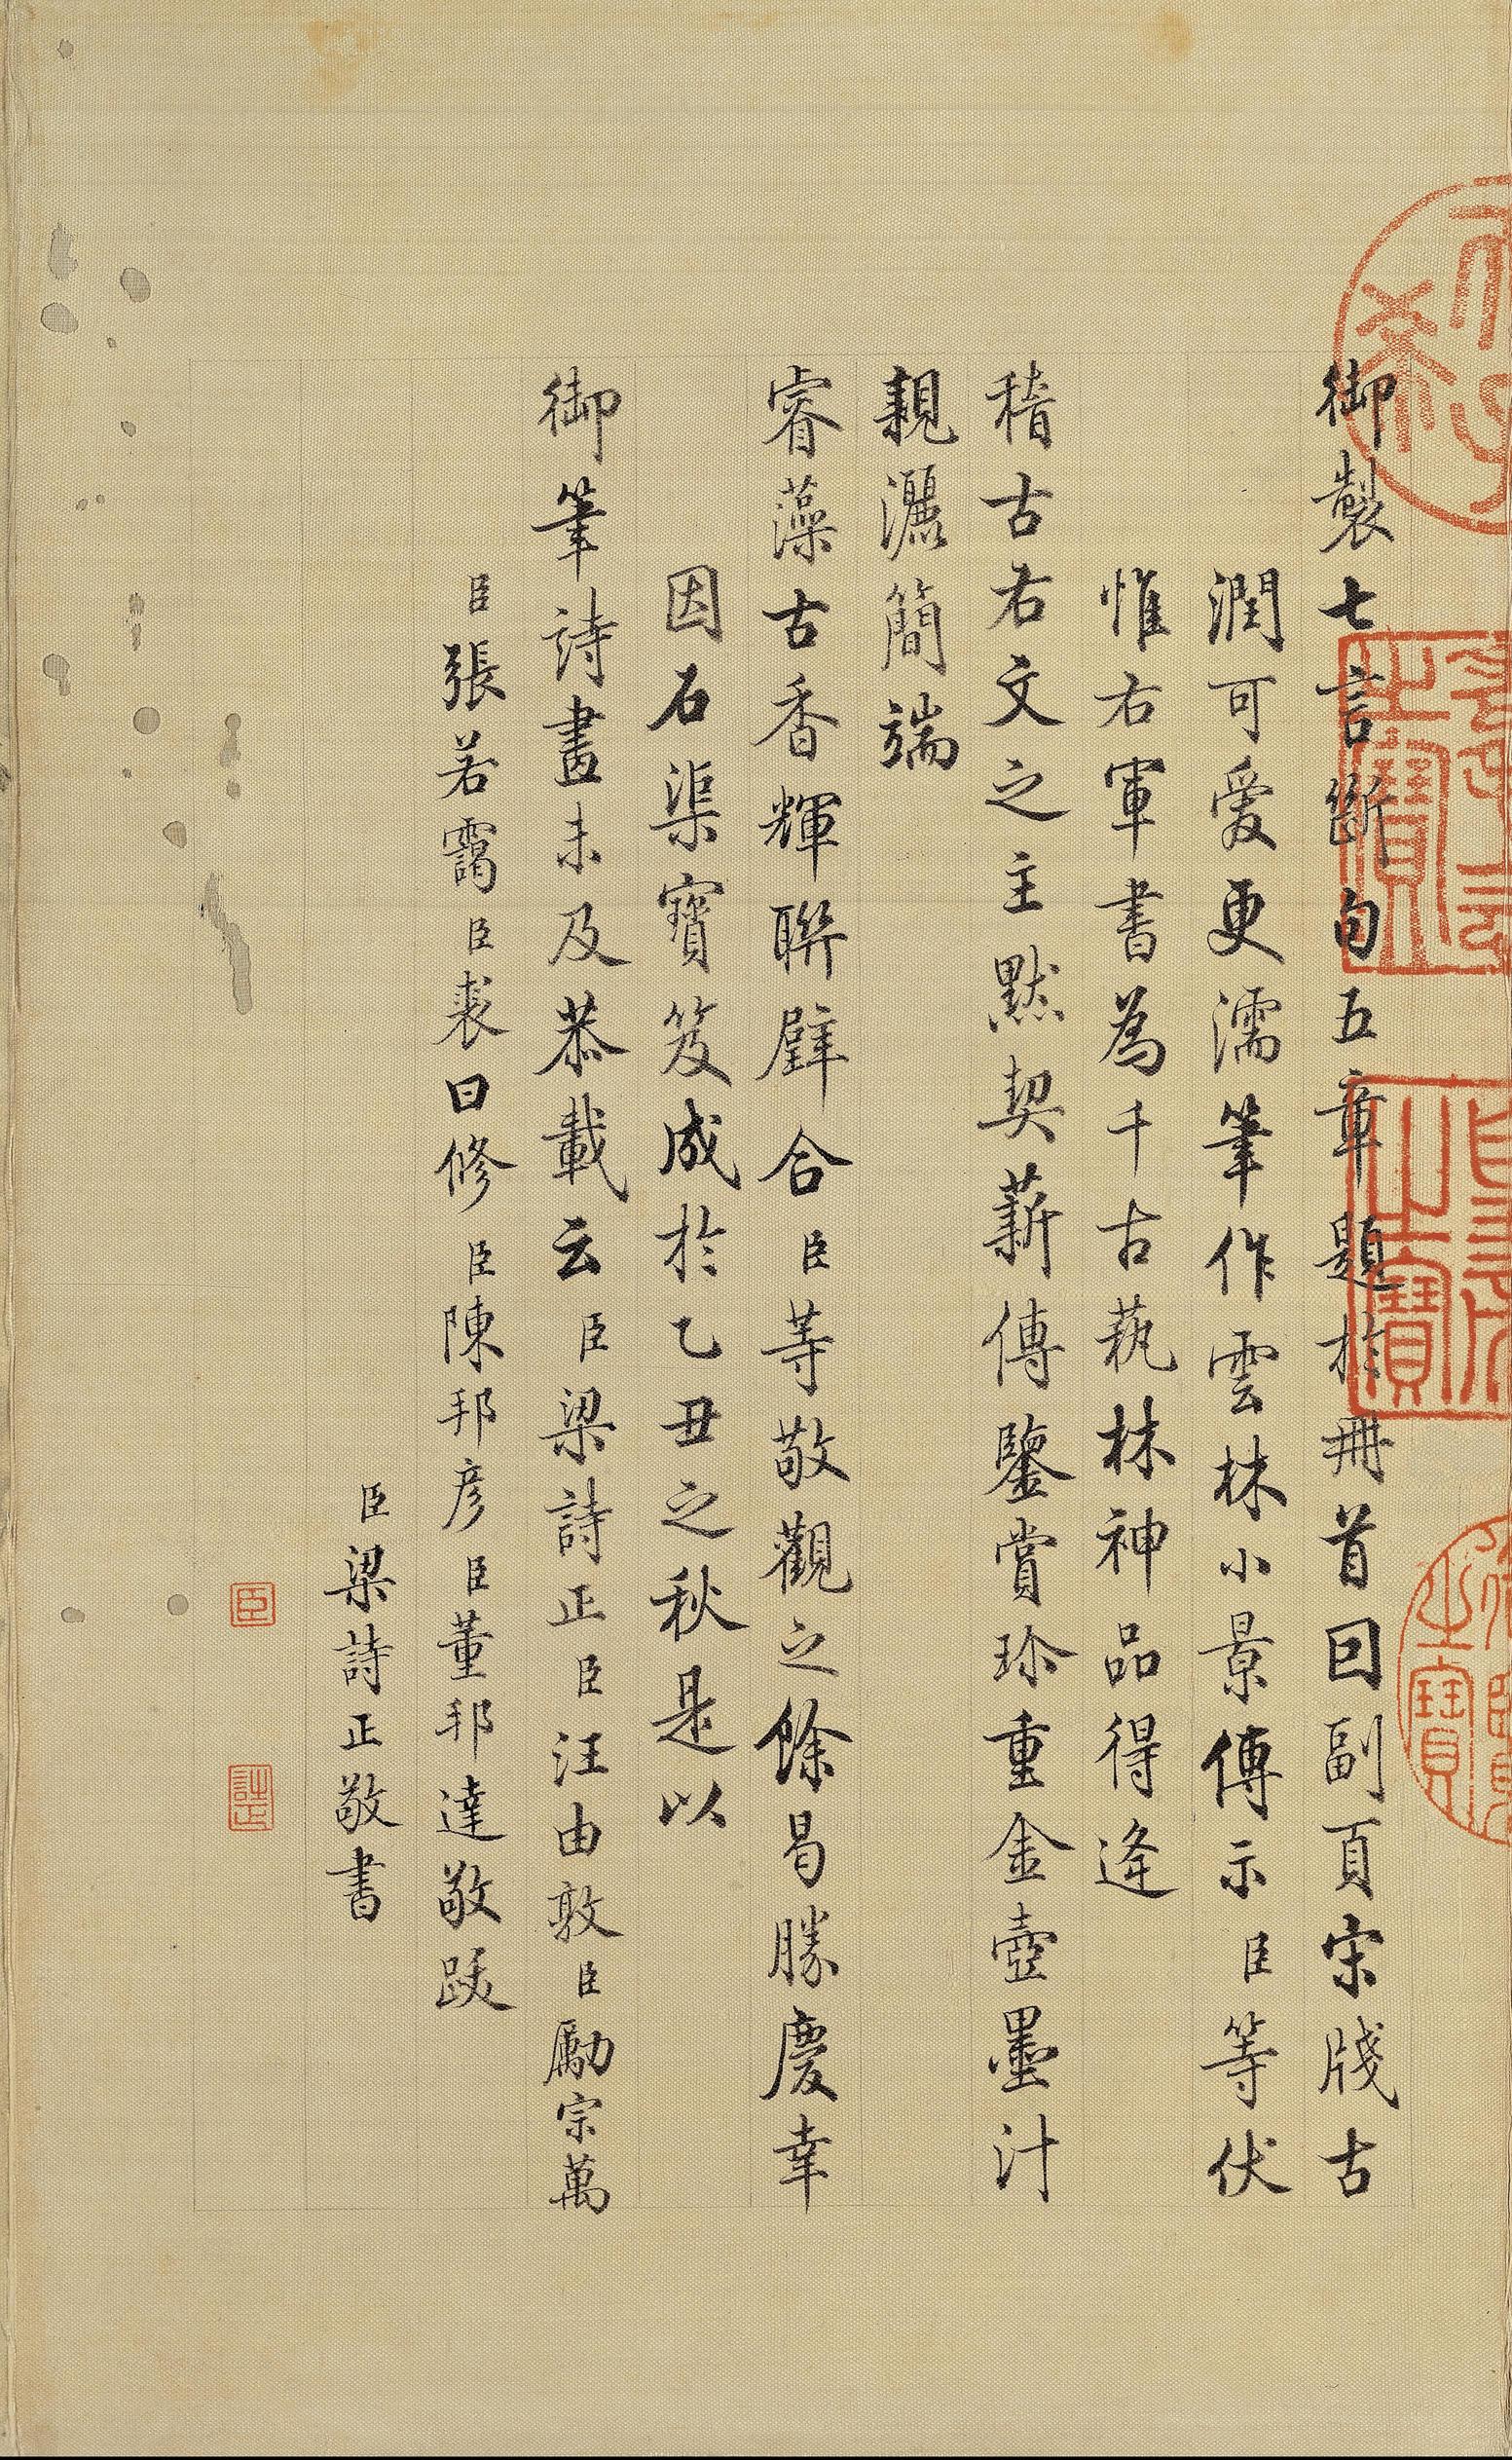 御製七言斷句五章題於冊首回副頁宋牋古
潤可愛更濡筆作雲林小景傳示臣等伏
惟右軍書為千古藝林神品得逢
稽古右文之主默契薪傳鑒賞珍重金壺墨汁
親灑簡端
睿藻古香輝聯璧合臣等敬觀之餘曷勝慶幸
因石渠寶笈成於乙丑之秋是以
御筆詩畫未及恭載云臣梁詩正臣汪由敦臣勵宗萬
臣張若靄臣裘曰修臣陳邦彥臣董邦達敬跋
臣梁詩正敬書
臣
詩正